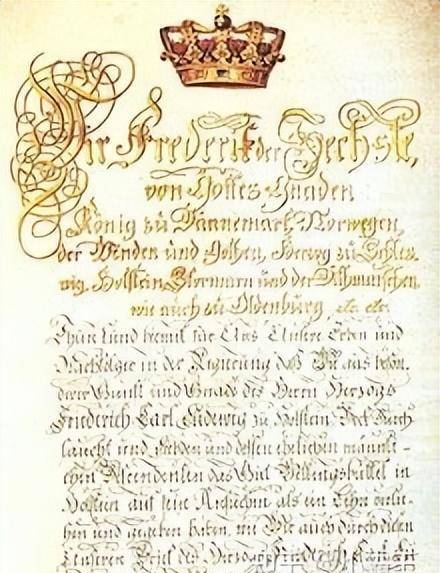 Wir Frederik der Sechste,
von Gottes Gnaden
König zu Dännemark, Norwegen,
der Wenden und Gothen, Herzog zu Schles
wig, Holstein, Stormarn und der Dithmarschen,
wie auch zu Oldenburg, etc. etc.
Thun kund hiemit für Uns Unsere Erben und
Nachfolger in der Regierung daß Wir aus beson
derer Gunst und Gnade des Herrn Herzogs
Friederich Carl Ludewig zu Holstein Beck Durch
laucht und Liebden und dessen ehelichen männli-
chen Descendenten das Gut Wellingsbüttel in
Holstein auf sein Ansuchen als ein Lehn verlie-
hen und gegeben haben, wie Wir auch durch diesen
Unseren Brief des Herzogs Friederich Carl